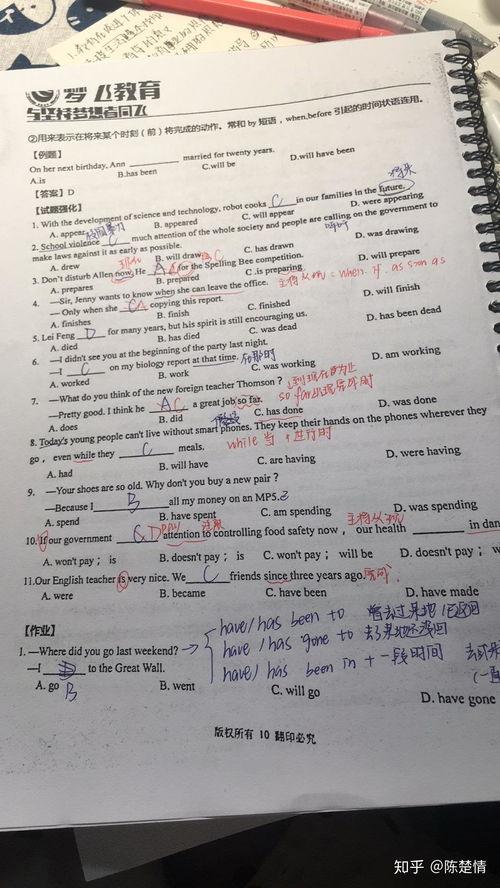 梦飞教育
与坚持梦想者同飞
②用来表示在将来某个时刻（前）将完成的动作。常和 by 短语，when,before 引起的时间状语连用。
【例题】
On her next birthday, Ann ________ married for twenty years.
A.is B.has been C.will be D.will have been
【答案】D
【试题强化】
将来
1. With the development of science and technology, robot cooks C in our families in the future.
A. appear B. appeared C. will appear D. were appearing
校园暴力
2. School violence C much attention of the whole society and people are calling on the government to
make laws against it as early as possible.
A. drew B. will draw C. has drawn D. was drawing
3. Don't disturb Allen now. He A for the Spelling Bee competition.
A. prepares B. prepared C .is preparing D. will prepare
主将从现 when. if. as soon as
4. —Sir, Jenny wants to know when she can leave the office.
— Only when she A copying this report.
A. finishes B. finish C. finished D. will finish
5. Lei Feng D for many years, but his spirit is still encouraging us.
A. died B. has died C. was dead D. has been dead
6. —I didn't see you at the beginning of the party last night.
—I C on my biology report at that time. 在那时
A. worked B. work C. was working D. am working
7. —What do you think of the new foreign teacher Thomson ? 到现在为止
—Pretty good. I think he A C a great job so far. so far 出现异外时
A. does B. did C. has done D. was done
8. Today's young people can't live without smart phones. They keep their hands on the phones wherever they
go，even while they C meals. while 当 +进行时
A. had B. will have C. are having D. were having
9. —Your shoes are so old. Why don't you buy a new pair ?
—Because I B all my money on an MP5.
A. spend B. have spent C. am spending D. was spending
主将从现
10. If our government D pay attention to controlling food safety now，our health ________ in dan
A. won't pay；is B. doesn't pay；is C. won't pay；will be D. doesn't pay；w
11.Our English teacher is very nice. We C friends since three years ago.
A. were B. became C. have been D. have made
【作业】
1. —Where did you go last weekend?
—I B to the Great Wall.
A. go B. went C. will go D. have gone
B
have/has been to 曾去过某地 已返回
have/has gone to 去了某地还没回
have/has been in + 一段时间
版权所有 10 翻印必究
知乎 @陈楚情